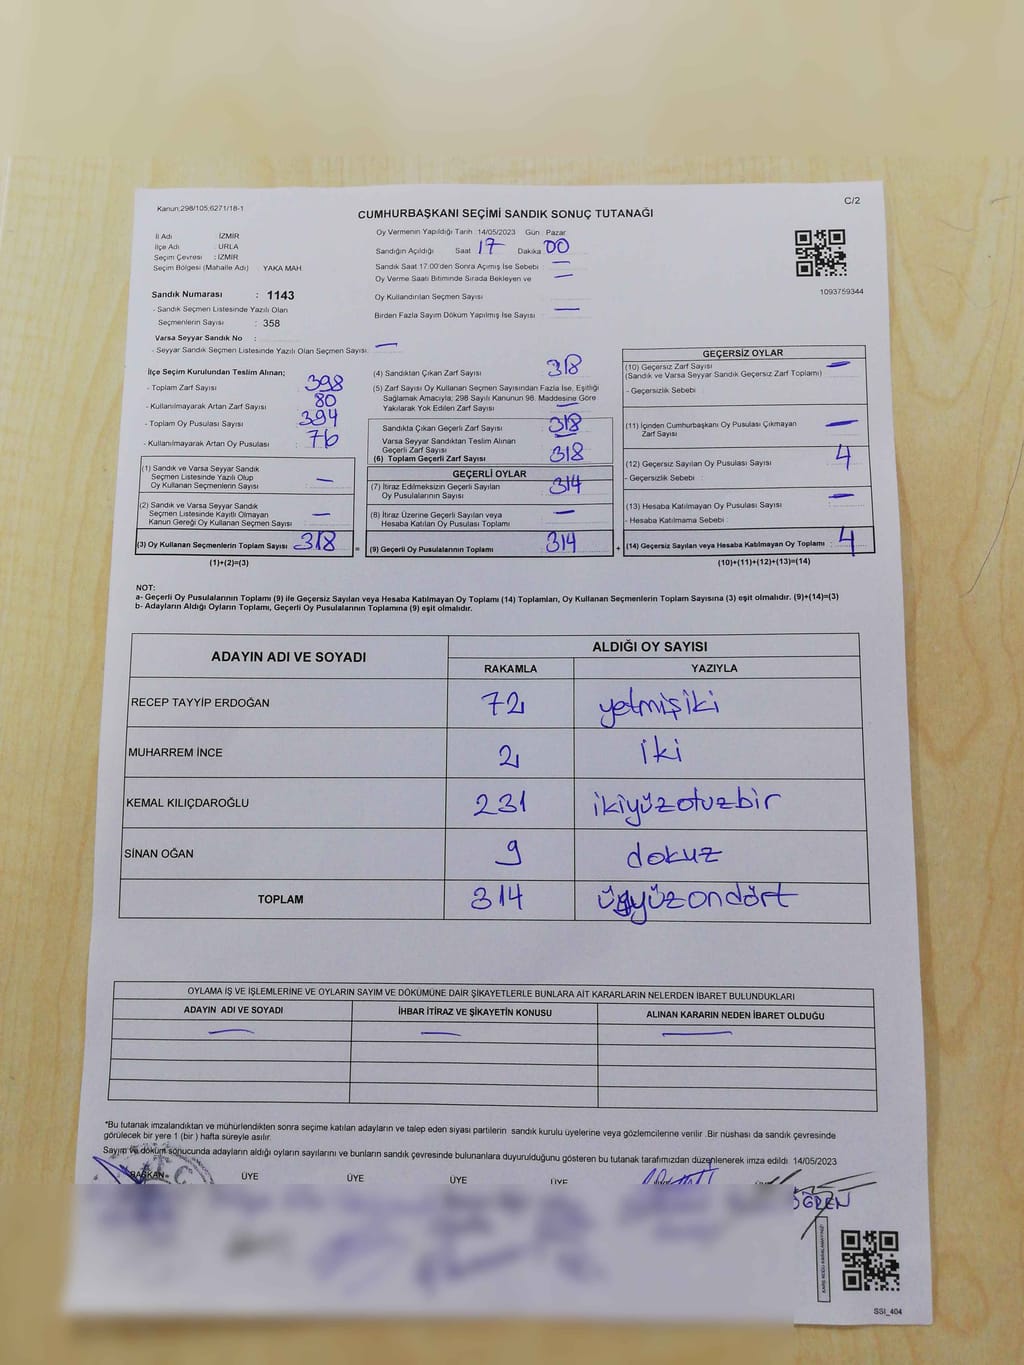 Kanun:298/105;6271/18-1
C/2
CUMHURBAŞKANI SEÇİMİ SANDIK SONUÇ TUTANAĞI
İl Adı : İZMİR
İlçe Adı : URLA
Seçim Çevresi : İZMİR
Seçim Bölgesi (Mahalle Adı) : YAKA MAH
Sandık Numarası : 1143
- Sandık Seçmen Listesinde Yazılı Olan
Seçmenlerin Sayısı : 358
Varsa Seyyar Sandık No :
- Seyyar Sandık Seçmen Listesinde Yazılı Olan Seçmen Sayısı: —
Oy Vermenin Yapıldığı Tarih :14/05/2023 Gün : Pazar
Sandığın Açıldığı Saat 17 Dakika 00
Sandık Saat 17:00'den Sonra Açımış İse Sebebi : —
Oy Verme Saati Bitiminde Sırada Bekleyen ve —
Oy Kullandırılan Seçmen Sayısı :
Birden Fazla Sayım Döküm Yapılmış İse Sayısı : —
1093759344
İlçe Seçim Kurulundan Teslim Alınan;
- Toplam Zarf Sayısı : 398
- Kullanılmayarak Artan Zarf Sayısı : 80
- Toplam Oy Pusulası Sayısı : 394
- Kullanılmayarak Artan Oy Pusulası : 76
(1) Sandık ve Varsa Seyyar Sandık
Seçmen Listesinde Yazılı Olup
Oy Kullanan Seçmenlerin Sayısı : —
(2) Sandık ve Varsa Seyyar Sandık
Seçmen Listesinde Kayıtlı Olmayan
Kanun Gereği Oy Kullanan Seçmen Sayısı : —
(3) Oy Kullanan Seçmenlerin Toplam Sayısı : 318
(1)+(2)=(3)
=
(4) Sandıktan Çıkan Zarf Sayısı : 318
(5) Zarf Sayısı Oy Kullanan Seçmen Sayısından Fazla İse, Eşitliği
Sağlamak Amacıyla; 298 Sayılı Kanunun 98. Maddesine Göre
Yakılarak Yok Edilen Zarf Sayısı : —
Sandıkta Çıkan Geçerli Zarf Sayısı : 318
Varsa Seyyar Sandıktan Teslim Alınan
Geçerli Zarf Sayısı : —
(6) Toplam Geçerli Zarf Sayısı : 318
GEÇERLİ OYLAR
(7) İtiraz Edilmeksizin Geçerli Sayılan
Oy Pusulalarının Sayısı : 314
(8) İtiraz Üzerine Geçerli Sayılan veya
Hesaba Katılan Oy Pusulası Toplamı : —
(9) Geçerli Oy Pusulalarının Toplamı : 314
+
GEÇERSİZ OYLAR
(10) Geçersiz Zarf Sayısı : —
(Sandık ve Varsa Seyyar Sandık Geçersiz Zarf Toplamı)
- Geçersizlik Sebebi :
(11) İçinden Cumhurbaşkanı Oy Pusulası Çıkmayan
Zarf Sayısı : —
(12) Geçersiz Sayılan Oy Pusulası Sayısı : 4
- Geçersizlik Sebebi :
(13) Hesaba Katılmayan Oy Pusulası Sayısı : —
- Hesaba Katılmama Sebebi :
(14) Geçersiz Sayılan veya Hesaba Katılmayan Oy Toplamı : 4
(10)+(11)+(12)+(13)=(14)
NOT:
a- Geçerli Oy Pusulalarının Toplamı (9) ile Geçersiz Sayılan veya Hesaba Katılmayan Oy Toplamı (14) Toplamları, Oy Kullanan Seçmenlerin Toplam Sayısına (3) eşit olmalıdır. (9)+(14)=(3)
b- Adayların Aldığı Oyların Toplamı, Geçerli Oy Pusulalarının Toplamına (9) eşit olmalıdır.
ADAYIN ADI VE SOYADI ALDIĞI OY SAYISI
RAKAMLA YAZIYLA
RECEP TAYYİP ERDOĞAN 72 yetmişiki
MUHARREM İNCE 2 iki
KEMAL KILIÇDAROĞLU 231 ikiyüzotuzbir
SİNAN OĞAN 9 dokuz
TOPLAM 314 üçyüzondört
OYLAMA İŞ VE İŞLEMLERİNE VE OYLARIN SAYIM VE DÖKÜMÜNE DAİR ŞİKAYETLERLE BUNLARA AİT KARARLARIN NELERDEN İBARET BULUNDUKLARI
ADAYIN ADI VE SOYADI İHBAR İTİRAZ VE ŞİKAYETİN KONUSU ALINAN KARARIN NEDEN İBARET OLDUĞU
— — —
*Bu tutanak imzalandıktan ve mühürlendikten sonra seçime katılan adayların ve talep eden siyasi partilerin sandık kurulu üyelerine veya gözlemcilerine verilir .Bir nüshası da sandık çevresinde
görülecek bir yere 1 (bir ) hafta süreyle asılır.
Sayım ve döküm sonucunda adayların aldığı oyların sayılarını ve bunların sandık çevresinde bulunanlara duyurulduğunu gösteren bu tutanak tarafımızdan düzenlenerek imza edildi. 14/05/2023
BAŞKAN ÜYE ÜYE ÜYE ÜYE
SSİ_404